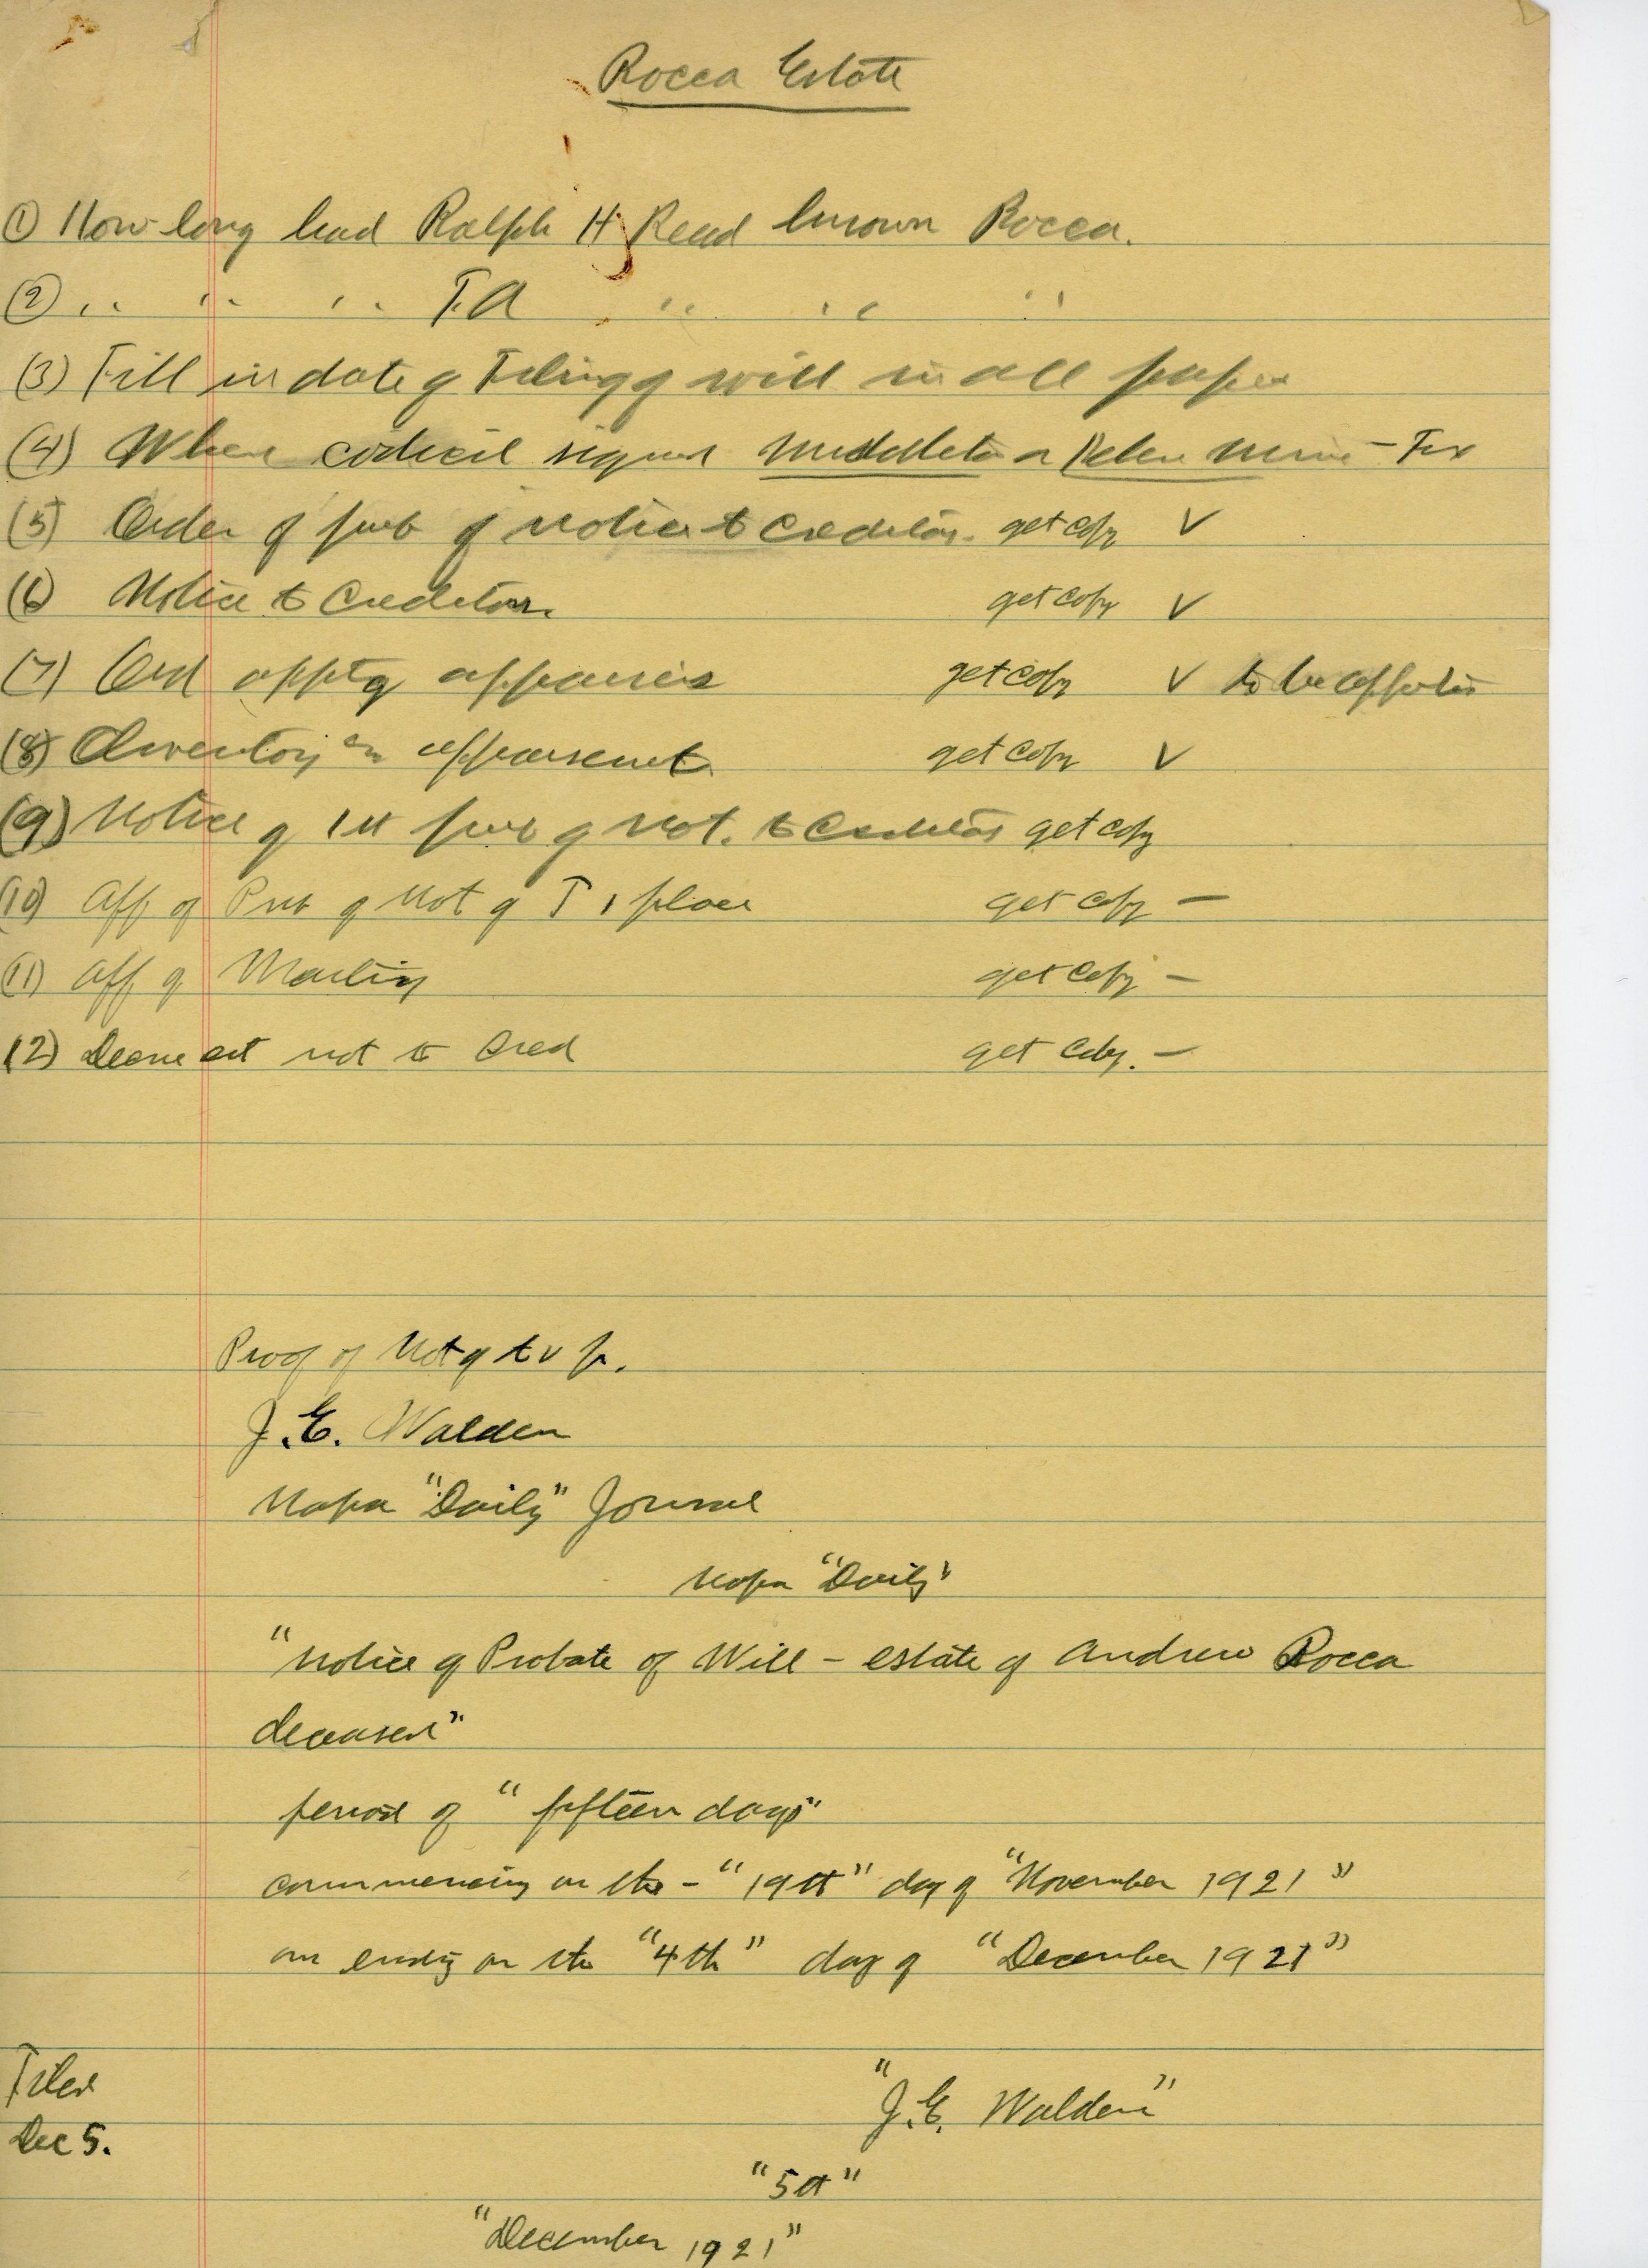 Rocca Estate
① How long had Ralph H Read known Rocca.
② " " " F.A " " "
(3) Fill in date of Filing of will in all papers
(4) Where codicil signed Middleton or Helen Mine -
(5) Order of pub of Notice to Creditors. get copy ✓
(6) Notice to Creditors. get copy ✓
(7) Ord apptg appraisers get copy ✓ to be
(8) Inventory an appraisement get copy ✓
(9) Notice of 1st pub of Not. to Creditors get copy
(10) Aff of Pub of Not of T & place get copy —
(11) Aff of Mailing get copy —
(12) Decree est not to Cred get copy. —
Proof of Not of t & p.
J.E. Walden
Napa "Daily" Journal
Napa "Daily"
"Notice of Probate of Will – estate of Andrew Rocca
deceased"
period of "fifteen days"
commencing on the – "19th" day of "November 1921"
an ending on the "4th" day of "December 1921"
Filed
Dec 5.
"J.E. Walden"
"5th"
"December 1921"